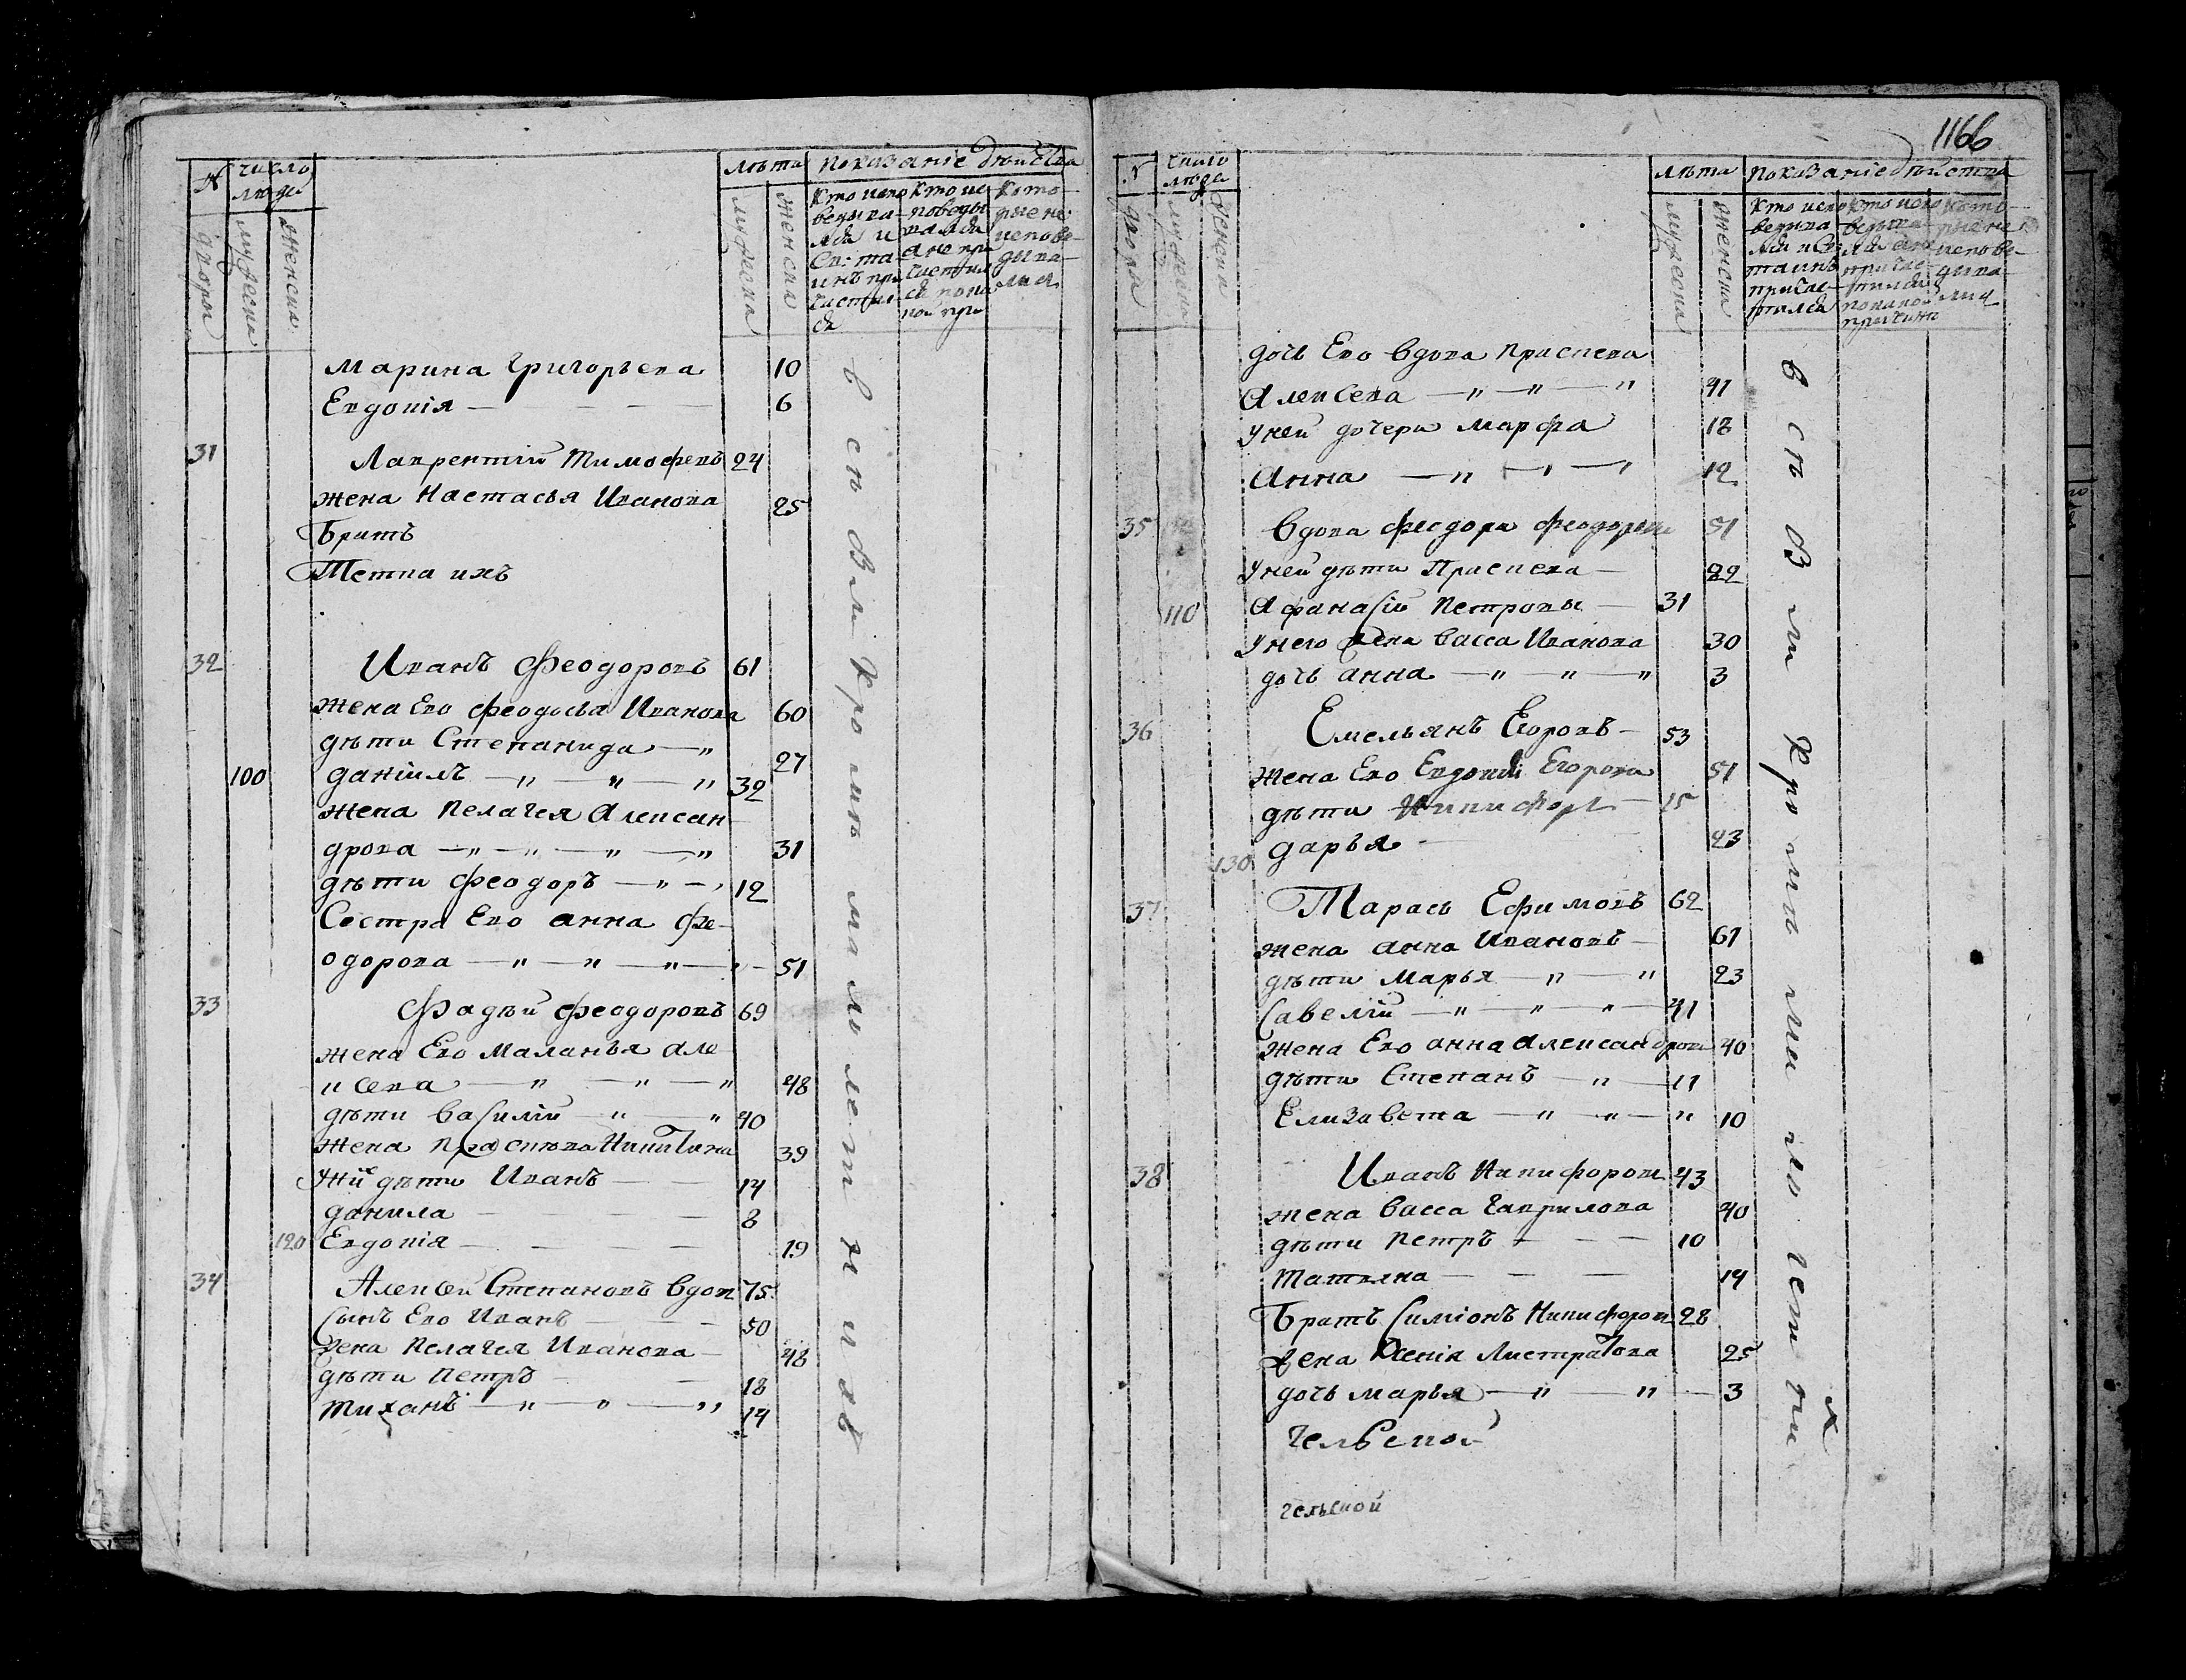 № дворовъ
Число людей
мужеска
женска
Лѣта
мужеска
женска
Показаніе дѣйства
Кто исповедывался и св: таинъ причастился
Кто исповедывался а не причастился и по какой при
Которые не исповедывались
Марина Григорьева 10
Евдокія — — — 6
31 Лаврентій Тимофеевъ 24
жена Настасья Иванова 25
Братъ
Тетка ихъ
32 Иванъ Феодоровъ 61
жена Ево Феодосья Иванова 60
дѣти Степанида — " 27
100 Даніилъ — " — " — " 32
жена Пелагея Алексан
дрова — " — " — " — " 31
дѣти Феодоръ — " — " 12
Сестра Ево Анна Фе-
одорова — " — " — " — " — 51
33 Фадѣй Феодоровъ 69
жена Ево Маланья Але
ксева — " — " — " 48
дѣти Василій — " — " 40
жена Прасковья Никитина 39
У ней дѣти Иванъ — — 14
Данила — — — — 8
120 Евдокія — — — — 19
34 Алексей Степановъ вдов 75
Сынъ Ево Иванъ — — 50
жена Пелагея Иванова — 48
дѣти Петръ — — 18
Тиханъ — " — " — " 14
всѣ Кроме малолетнихъ
1166
№ двора
Число людей
мужеска
женска
Лѣта
мужеска
женска
Показаніе дѣйства
Кто исповедывался и св таинъ причастился
Кто исповедывался а не причастился по какой причинѣ
Которые не исповедывались
дочь Ево вдова Прасковья
Алексева — " — " — " 41
у ней дочери Марфа 18
Анна — " — " — " 12
35 Вдова Феодора Феодорова 51
У ней дѣти Прасковья — 22
110 Афанасій Петровы — 31
У него жена Васса Иванова 30
дочь Анна — " — " — " 3
36 Емельянъ Егоровъ — 53
жена Ево Евдокія Егорова 51
дѣти Никифоръ — 15
130 Дарья — 23
37 Тарасъ Ефимовъ 62
жена Анна Ивановъ — 61
дѣти Марья — " — " 23
Савелій — " — " — " — 41
жена Ево Анна Александрова 40
дѣти Степанъ — " — 11
Елизавета — " — " — " 10
38 Иванъ Никифоров 43
жена Васса Гаврилова 40
дѣти Петръ — — — 10
Татьяна — — — 14
Братъ Симіонъ Никифоров 28
жена Ксенія Листратова 25
дочь Марья — " — " — 3
Гельской
гельской
всѣ Кроме малолетних